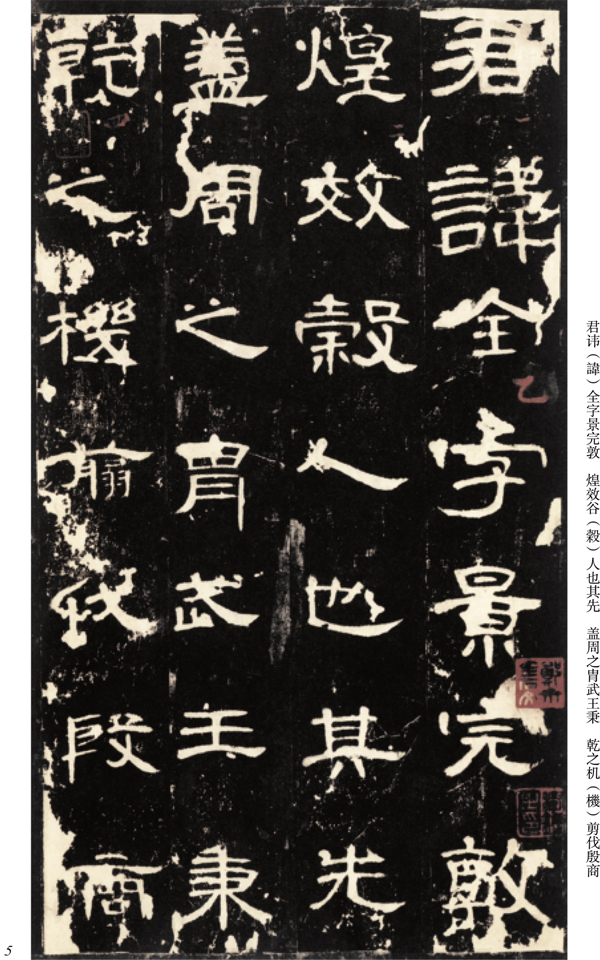 君諱全字景完敦
煌效穀人也其先
蓋周之胄武王秉
乾之機翦伐殷商
君讳（諱）全字景完敦　煌效谷（穀）人也其先　盖周之胄武王秉　乾之机（機）剪伐殷商
乙
5